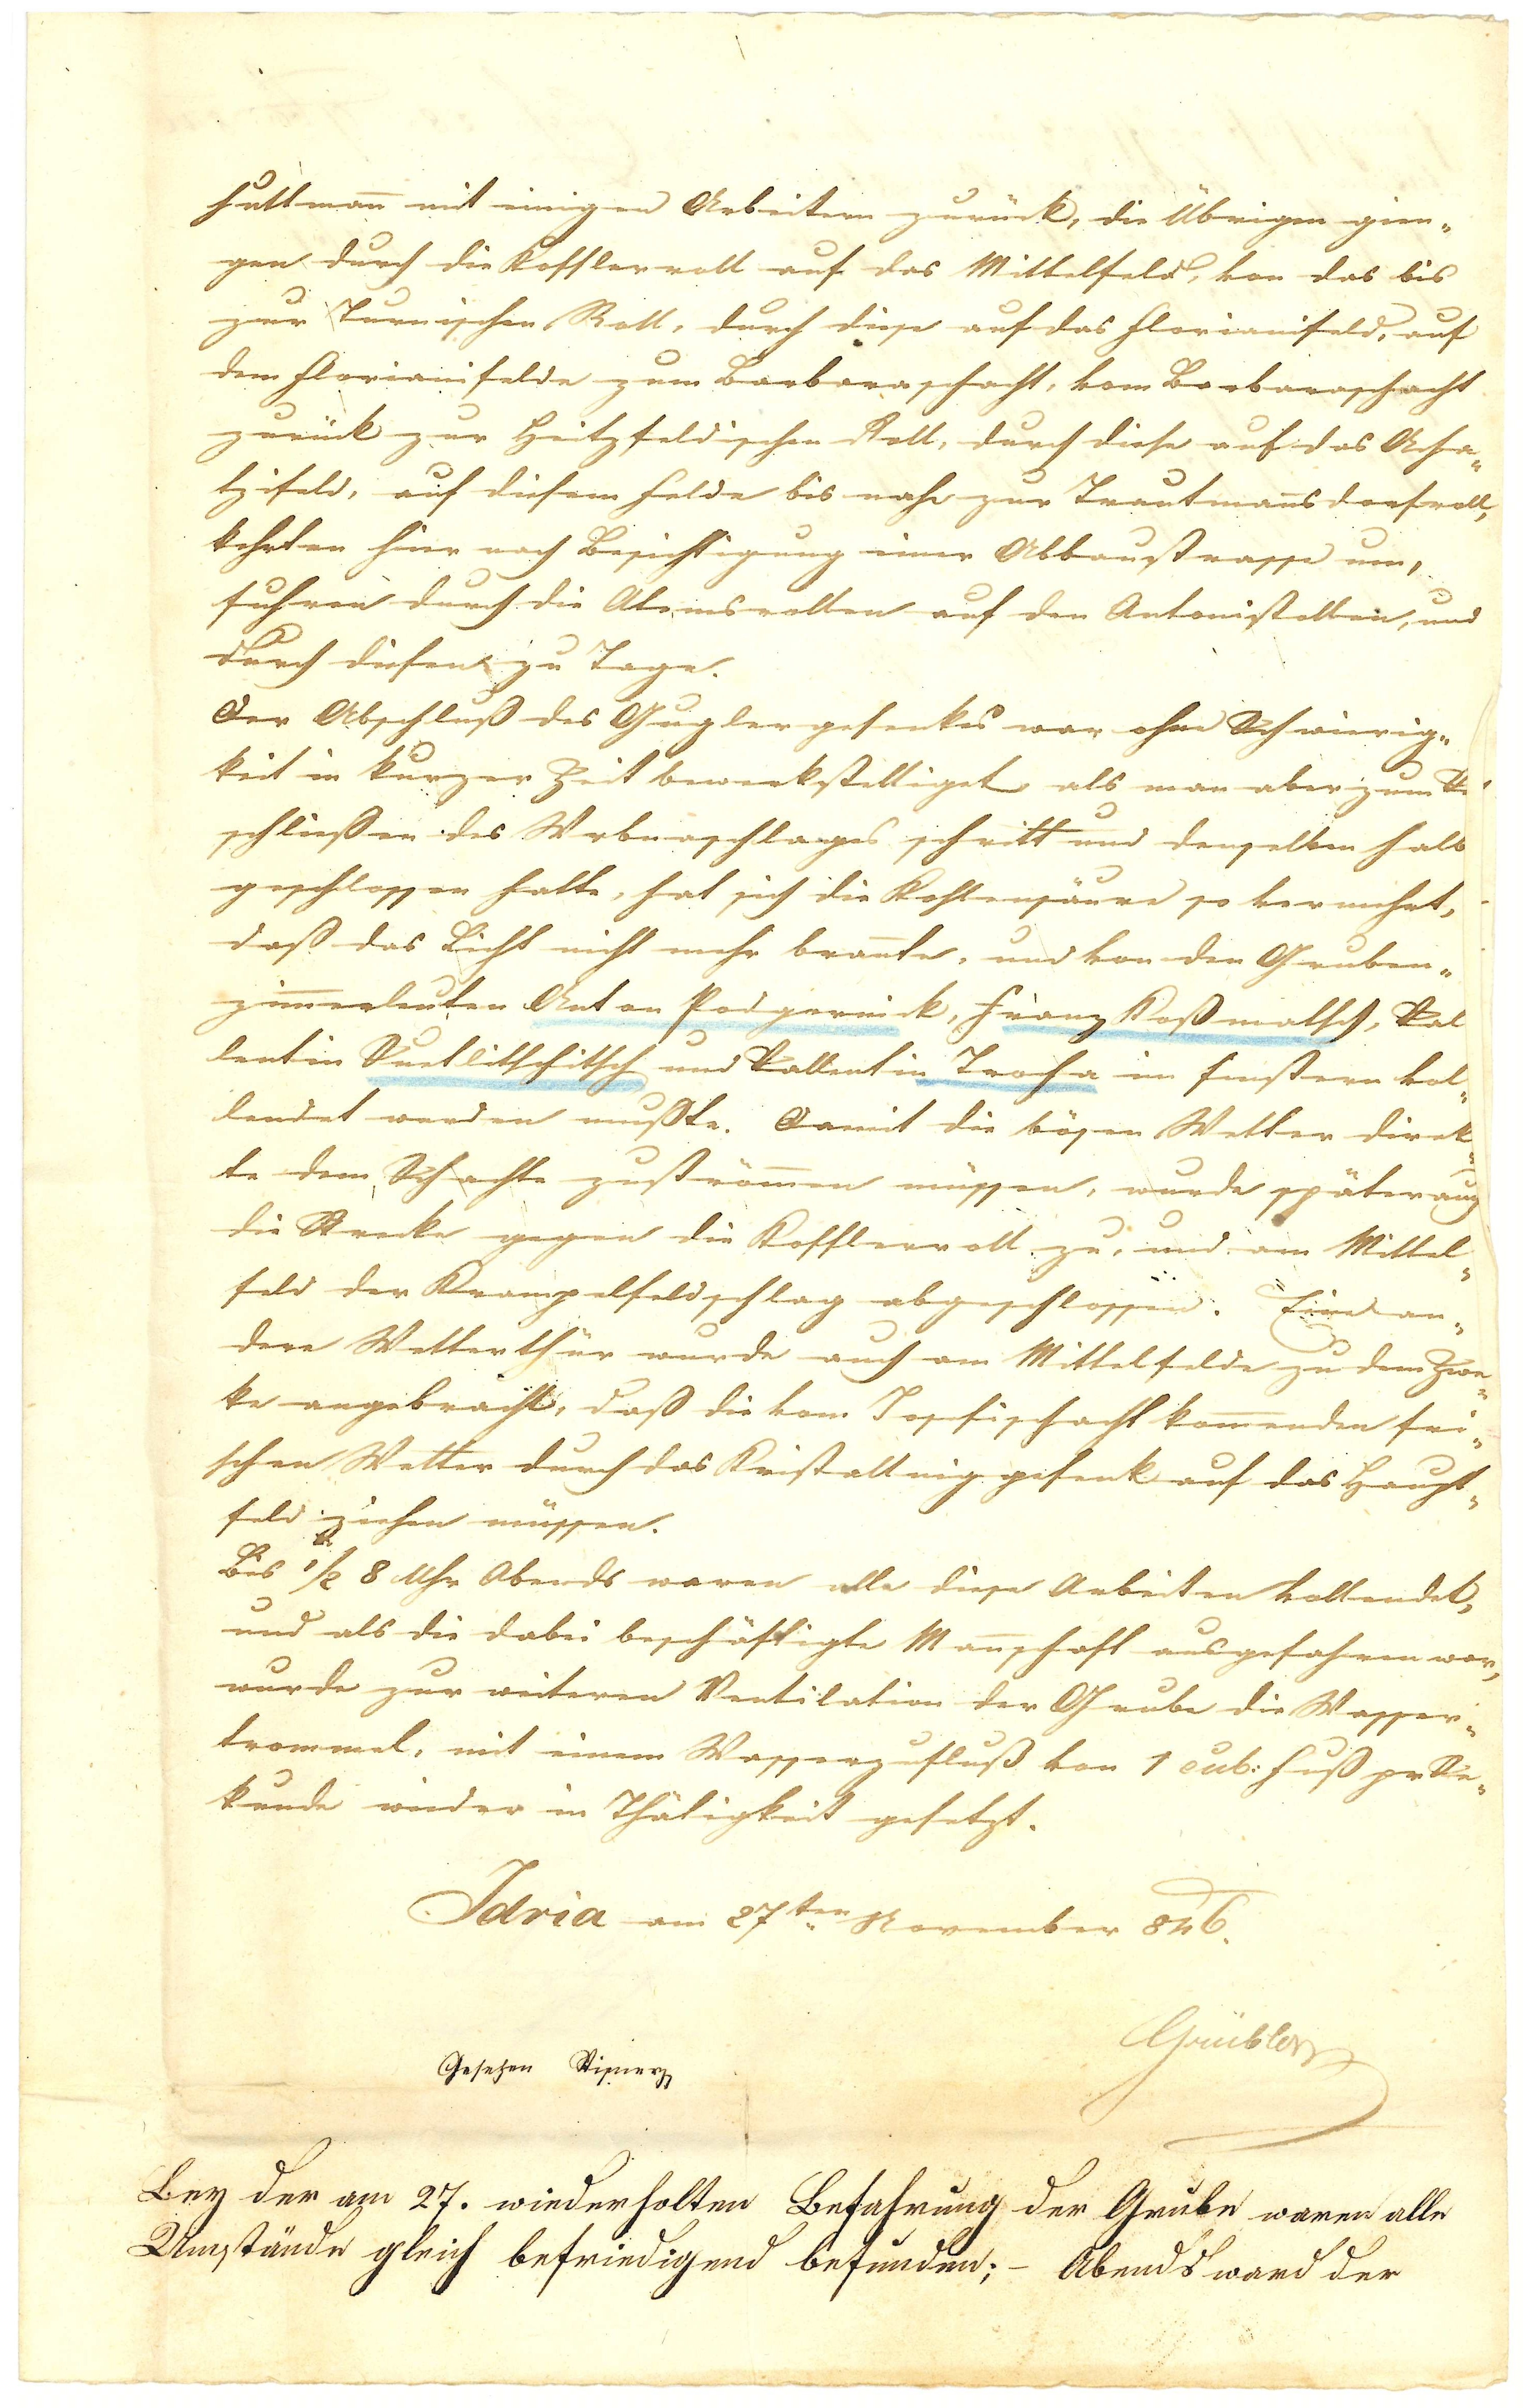 huttmann mit einigen Arbeitern zurück, die Übrigen gien-
gen durch die Kofflerroll auf das Mittelfeld, von das bis
zur Turnischen Roll, durch diese auf das Florianifeld, auf
dem Florianifelde zum Barbaraschacht, vom Barbaraschacht
zurück zur Heitzfeldischen Roll, durch diese auf das Acha-
tzifeld, auf diesem Felde bis nahe zur Trautmannsdorfroll,
kehrten hier nach Besichtigung einer Abbaustrasse um,
fuhren durch die Atemsrollen auf den Antonistollen, und
durch diesen zu Tage.
Der Abschluß des Guglergesenkes war ohne Schwierig-
keit in kurzer Zeit bewerkstelliget, als man aber zum Ve
schließen des Wrbnaschlages schritt und denselben halb
geschlossen hatte, hat sich die Kohlensäure so vermehrt,
daß das Licht nicht mehr brannte, und von den Gruben-
zimmerleuten Anton Podgornick, Franz Koßmatsch, Val
lentin Svetlitschitsch und Vallentin Trocha im finstern vol-
lendet werden mußte. Damit die bösen Wetter direk-
te dem Schachte zuströmmen müssen, wurde später auch
die Strecke gegen die Kofflerroll zu, und am Mittel-
feld der Krampelfeldschlag abgeschlossen. Eine an-
dere Wetterthür wurde auch am Mittelfelde zu dem Zwe-
ke angebracht, daß die vom Josefischacht kommenden fri-
schen Wetter durch das Kristallnig gesenk auf das Haupt-
feld ziehen müssen.
Bis 1/2 8 Uhr Abends waren alle diese Arbeiten vollendet,
und als die dabei beschäftigte Mannschaft ausgefahren war,
wurde zur weiteren Ventilation der Grube die Wasser-
trommel, mit einem Wasserzufluß von 1 cub: Fuß pr Se-
kunde wieder in Thätigkeit gesetzt.
Idria am 27ten November 846.
Grübler
Gesehen
Bey der am 27. wiederholten Befahrung der Grube waren alle
Umstände gleich befriedigend befunden; – Abends ward der